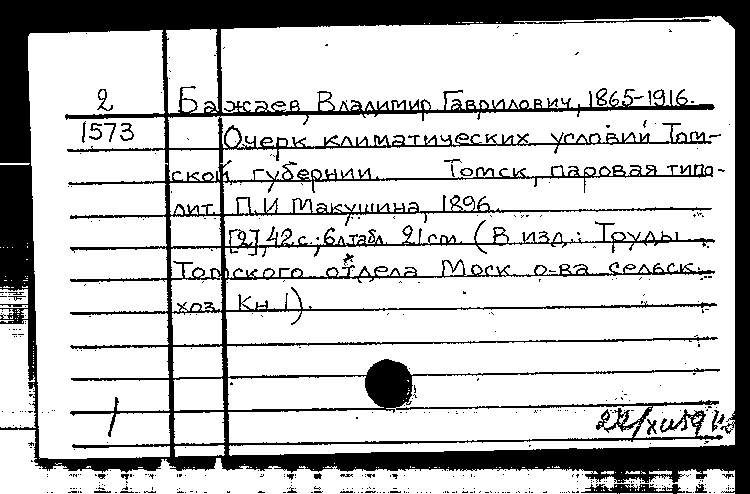 2 Бажаев, Владимир Гаврилович, 1865-1916.
1573 Очерк климатических условий Том-
ской губернии. Томск, паровая типо-
лит. П.И Макушина, 1896.
[2], 42 с.; 6л табл. 21 см. (В изд.: Труды
Томского отдела Моск о-ва сельск.
хоз. Кн 1).
1